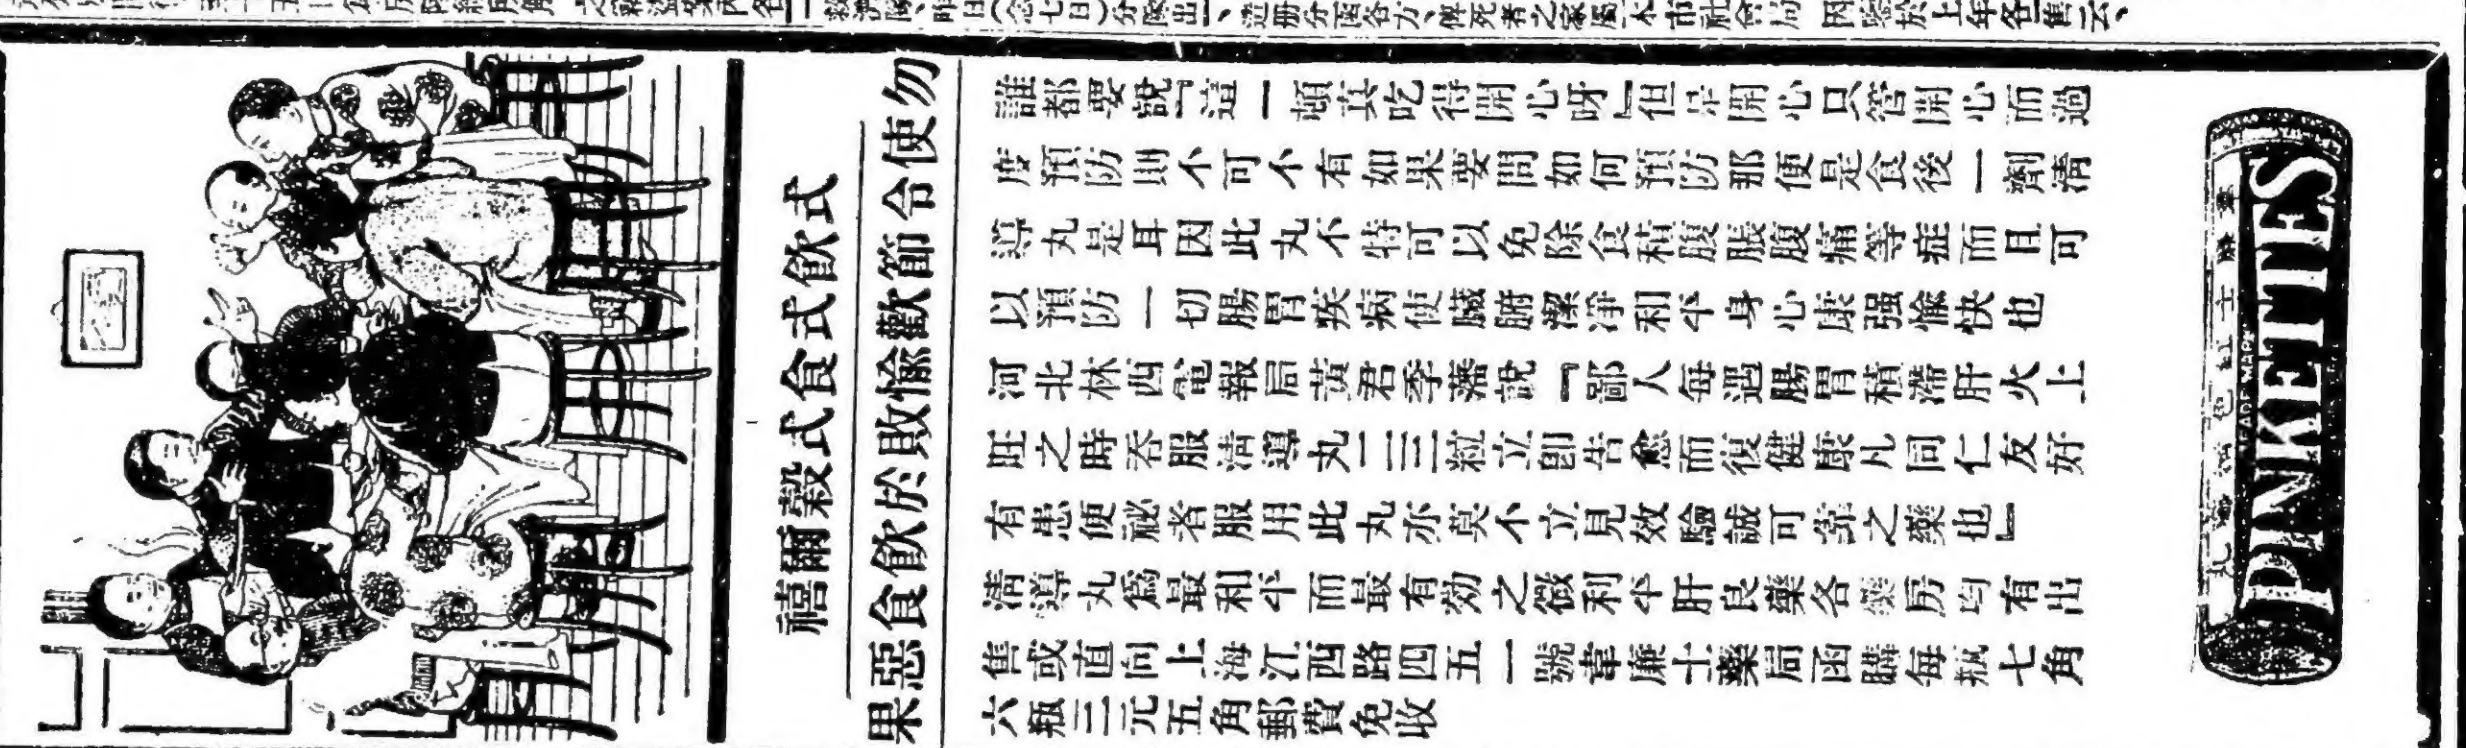 式飲式食式穀爾禧
勿使令節歡愉敗於飲食惡果
誰都要說『這一頓真吃得開心呀』但是開心只管開心而過
度預防則不可不有如果要問如何預防那便是食後一劑清
導丸是耳因此丸不特可以免除食積腹脹腹痛等症而且可
以預防一切腸胃疾病使臟腑潔淨和平身心康强愉快也
河北林西電報局黃君季藩說『鄙人每遇腸胃積滯肝火上
旺之時吞服清導丸二三粒立卽告愈而復健康凡同仁友好
有患便祕者服用此丸亦莫不立見效驗誠可靠之藥也』
清導丸爲最和平而最有効之微利平肝良藥各藥房均有出
售或直向上海江西路四五一號韋廉士藥局函購每瓶七角
六瓶三元五角郵費免收
韋廉士紅色清導丸
TRADE MARK
PINKETTES